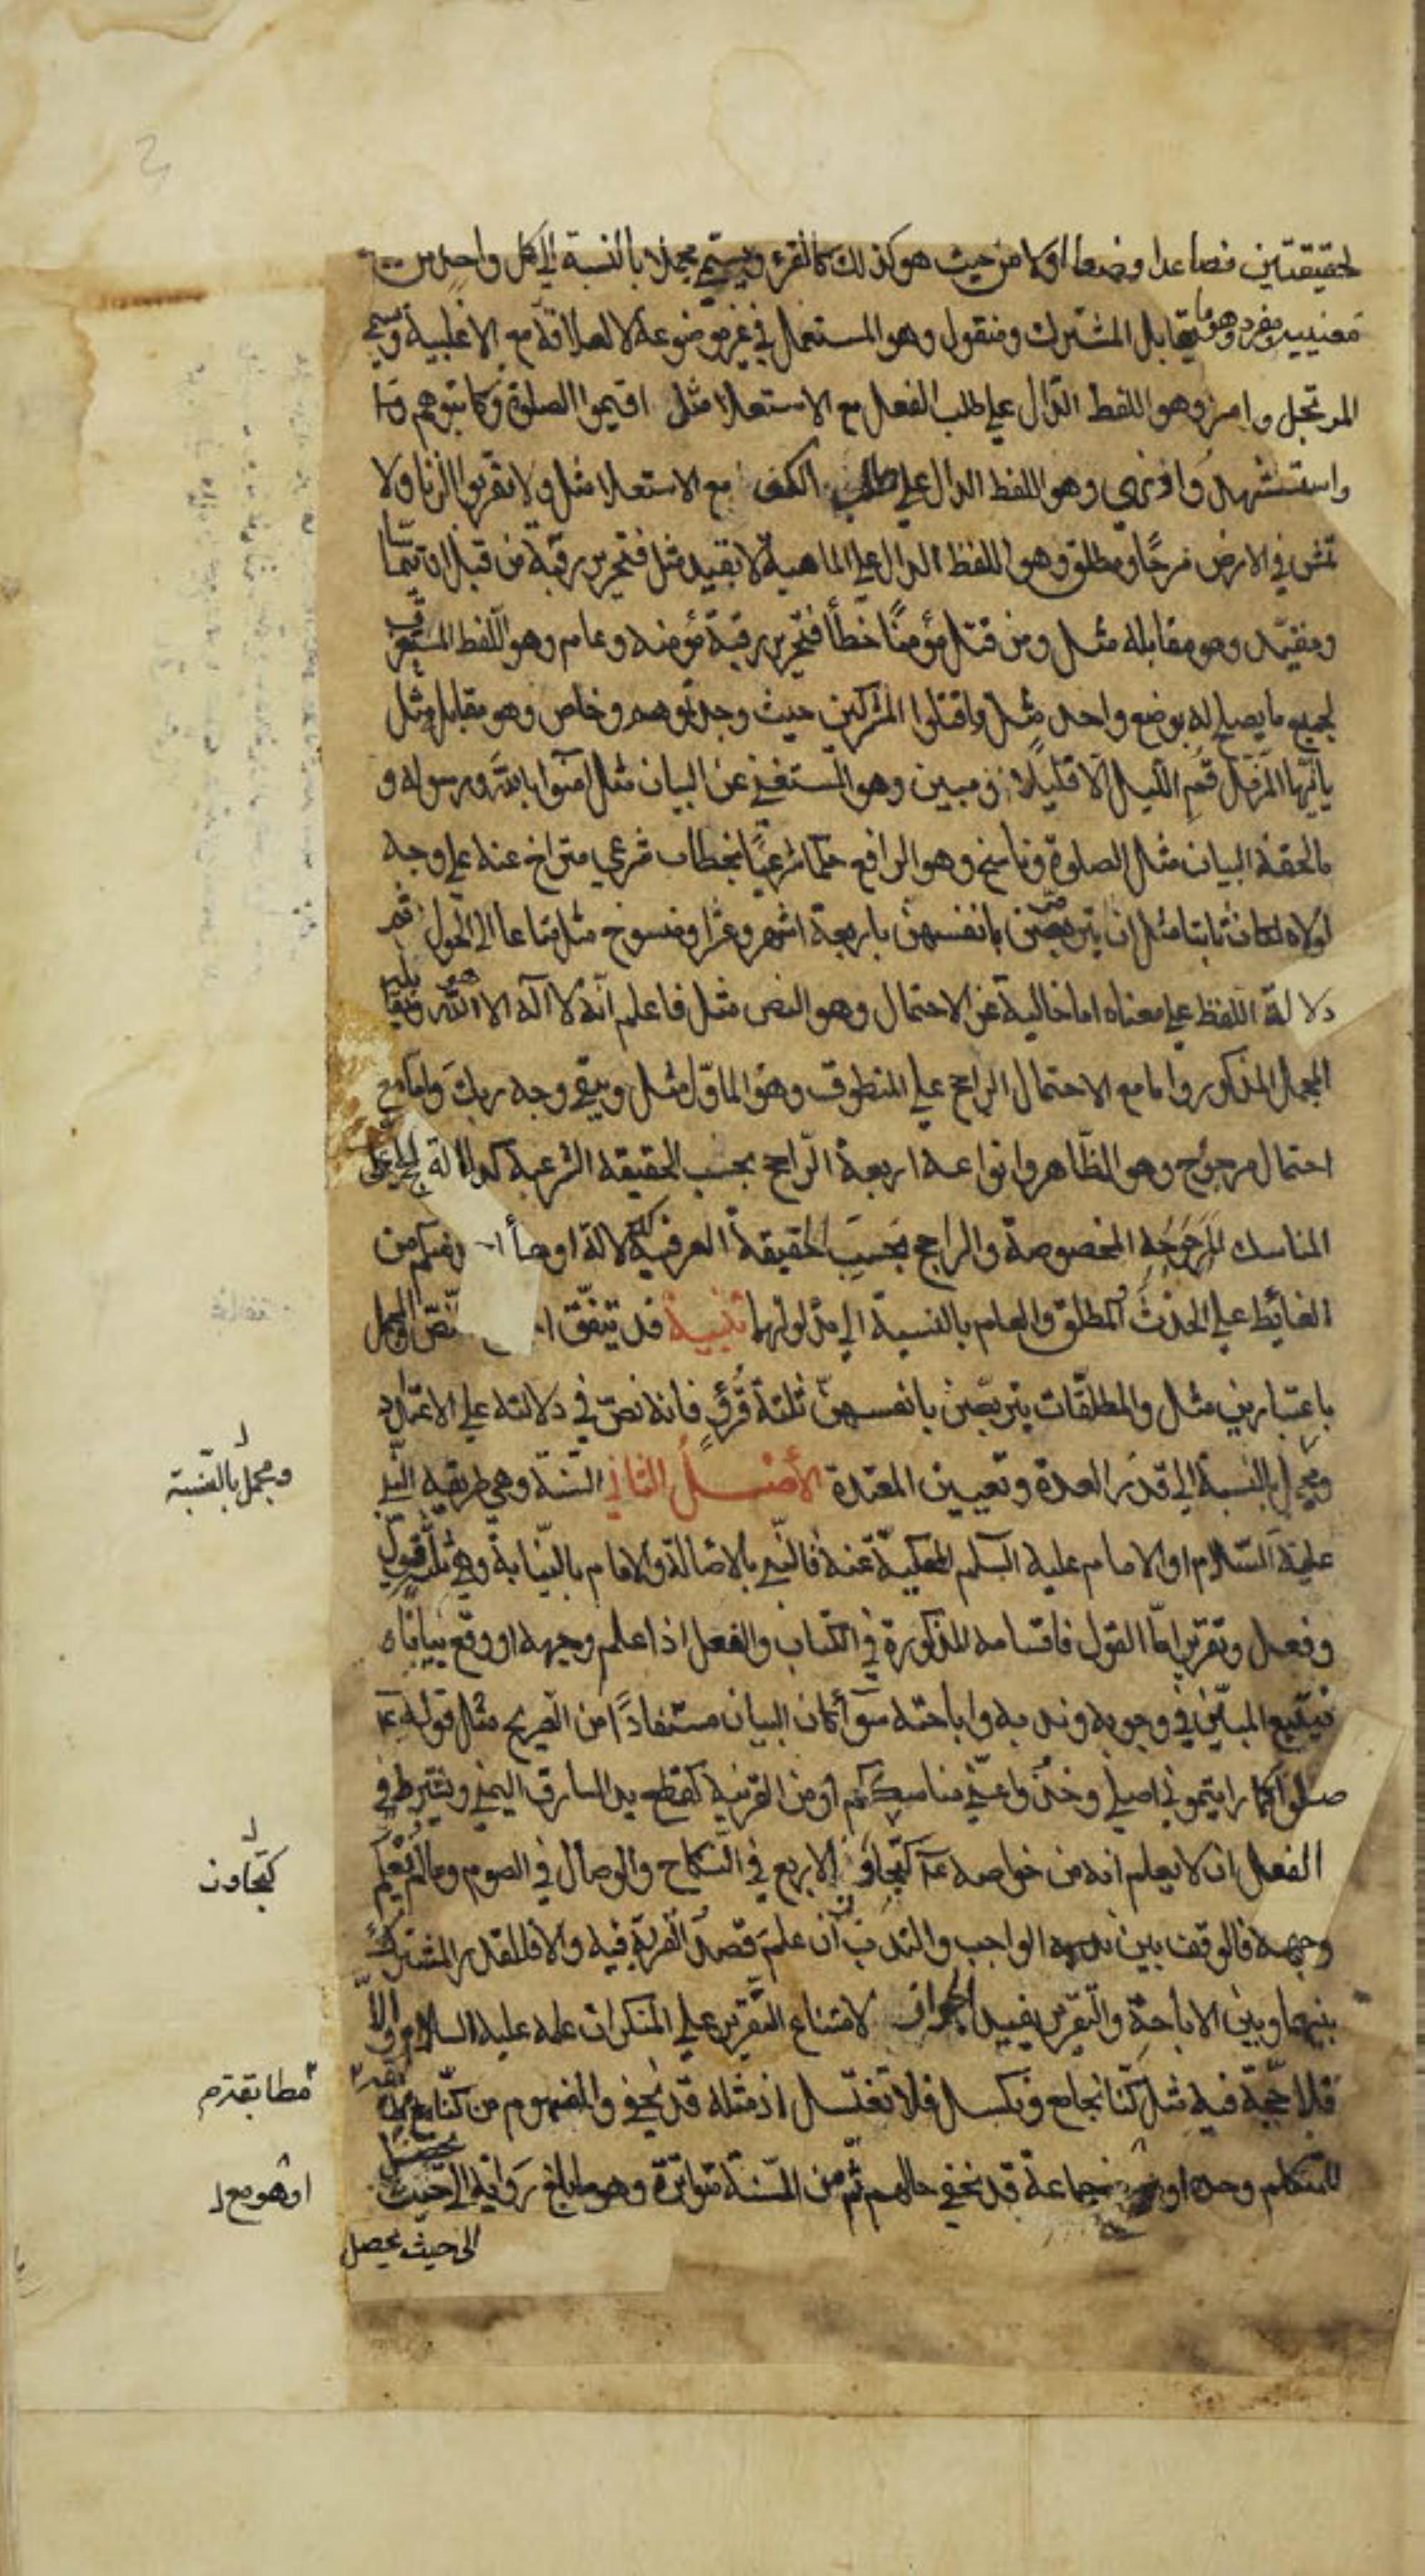 لحقيقتين فصاعدا وضعا اولا من حيث هو كذلك كالقرء ويسمى مجملا بالنسبة الى كل واحد من
معنييه ومفرد وهو ما يقابل المشترك ومنقول وهو المستعمل في غير موضوعه لا لعلاقة مع الاغلبية
المرتجل وامر وهو اللفظ الدال على طلب الفعل مع الاستعلا مثل اقيموا الصلوة وكاتبوهم
واستشهدوا ونهي وهو اللفظ الدال على طلب الكف مع الاستعلا مثل ولا تقربوا الزنا ولا
تمش في الارض مرحا ومطلق وهو اللفظ الدال على الماهية لا بقيد مثل فتحرير رقبة من قبل ان يتماسا
ومقيد وهو مقابله مثل ومن قتل مؤمنا خطأ فتحرير رقبة مؤمنه وعام وهو اللفظ المستغرق
لجميع ما يصلح له بوضع واحد مثل واقتلوا المشركين حيث وجدتموهم وخاص وهو مقابل مثل
يا ايها المزمل قم الليل الا قليلا ومبين وهو المستغني عن البيان مثل آمنوا بالله ورسوله و
مالحقه البيان مثل الصلوة وناسخ وهو الرافع حكما شرعيا بخطاب شرعي متراخ عنه على وجه
لولاه لكان ثابتا مثل ان يتربصن بانفسهن باربعة اشهر وعشرا ومنسوخ مثل متاعا الى الحول ثم
دلالة اللفظ على معناه اما خالية عن الاحتمال وهو النص مثل فاعلم انه لا اله الا الله ويقابله
المجمل المذكور واما مع الاحتمال الراجح على المنطوق وهو الماوّل مثل ويبقى وجه ربك واما مع
احتمال مرجوح وهو الظاهر وانواعه اربعة الراجح بحسب الحقيقه الشرعية كدلالة الحج على
المناسك المخصوصة والراجح بحسب الحقيقة العرفية كدلالة او جأ ا منكم من
الغائط على الحدث والمطلق والعام بالنسبة الى مدلولهما تنبيه قد يتفق ا النص والمجمل
باعتبارين مثل والمطلقات يتربصن بانفسهن ثلثة قروء فانه نص في دلالته على الاعتداد
ومجمل بالنسبة الى قدر العدة وتعيين المعتدة الأصل الثاني السنة وهي طريقة النبي
ومجمل بالنسبة
عليه السلام او الامام عليه السلم المحكية عنه فالنبي بالاصالة والامام بالنيابة وهي ثلث قول
وفعل وتقرير اما القول فاقسامه المذكورة في الكتاب والفعل اذا علم وجهه او وقع بيانا
فيتبع المبين في وجوبه وندبه واباحته سوآ كان البيان مستفادا من الصريح مثل قوله ع
صلوا كما رايتموني اصلي وخذوا عني مناسككم او من القرينة كقطع يد السارق اليمنى ويشترط في
الفعل ان لا يعلم انه من خواصه ع كتجاوز الاربع في النكاح والوصال في الصوم وما لم يعلم
كتجاوز
وجهه فالوقف بين الواجب والندب ان علم قصد القربة فيه والا فللقدر المشترك
بينهما وبين الاباحة والتقرير يفيد الجواز لامتناع التقرير على المنكر ان علمه عليه السلام والا
فلا حجة فيه مثل كنا نجامع ونكسل فلا نغتسل اذ مثله قد يخفى والمفهوم من كنا نجامع
للمتكلم وحده او جماعة قد تخفى حالهم ثم من السنة متواترة وهو ما بلغ رواية الى حيث
او هو مع
الى حيث يحصل